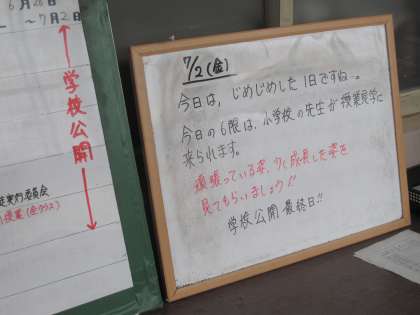 6月28日
～7月2日
学校公開
7/2(金)
今日は、じめじめした1日ですね…。
今日の6限は、小学校の先生が授業見学に
来られます。
頑張っている姿、少く成長した姿を
見てもらいましょう!!
学校公開最終日!!